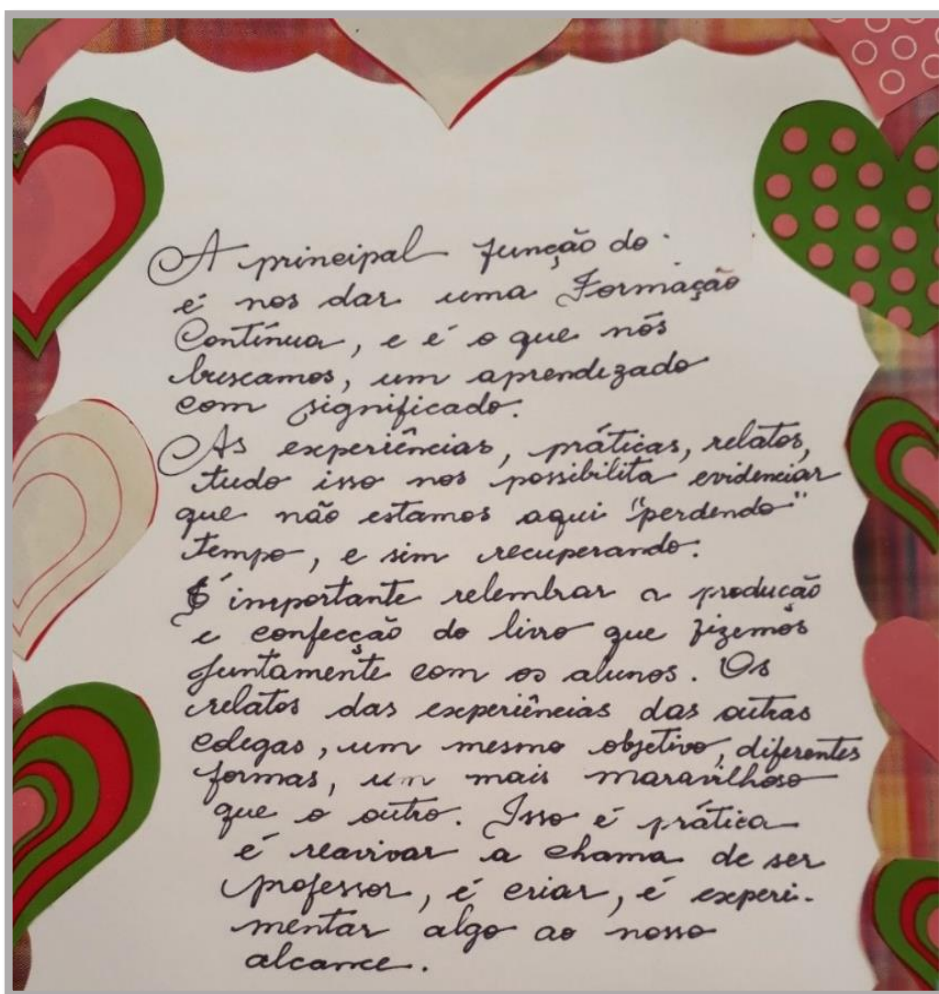 A principal função do
é nos dar uma Formação
Contínua, e é o que nós
buscamos, um aprendizado
com significado.
As experiências, práticas, relatos,
tudo isso nos possibilita evidenciar
que não estamos aqui "perdendo"
tempo, e sim recuperando.
É importante relembrar a produção
e confecção do livro que fizemos
juntamente com os alunos. Os
relatos das experiências das outras
colegas, um mesmo objetivo, diferentes
formas, um mais maravilhoso
que o outro. Isso é prática
é reavivar a chama de ser
professor, é criar, é experi-
mentar algo ao nosso
alcance.